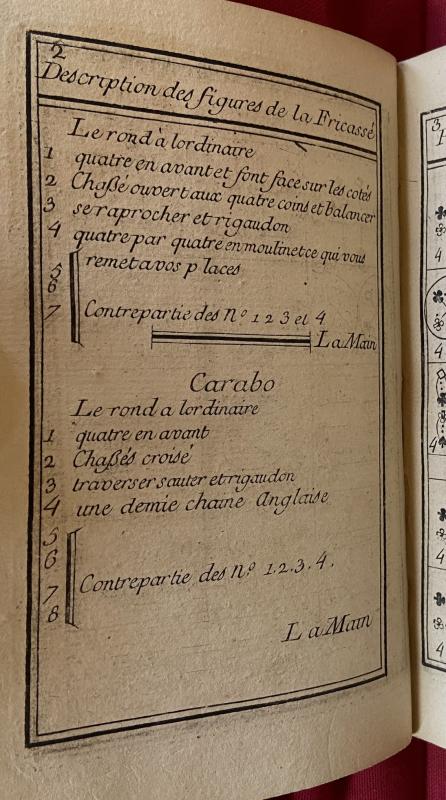 2
Description des figures de la Fricassé
Le rond à lordinaire
1 quatre en avant et font face sur les cotés
2 Chaßé ouvert aux quatre coins et balancer
3 se raprocher et rigaudon
4 quatre par quatre en moulinet ce qui vous
remet a vos places
5
6
7 Contrepartie des N.º 1 2 3 et 4
La Main
Carabo
Le rond a lordinaire
1 quatre en avant
2 Chaßés croisé
3 traverser sauter et rigaudon
4 une demie chaine Anglaise
5
6
7 Contrepartie des N.º 1. 2. 3. 4.
8
La Main
3
4
4
4
4
4